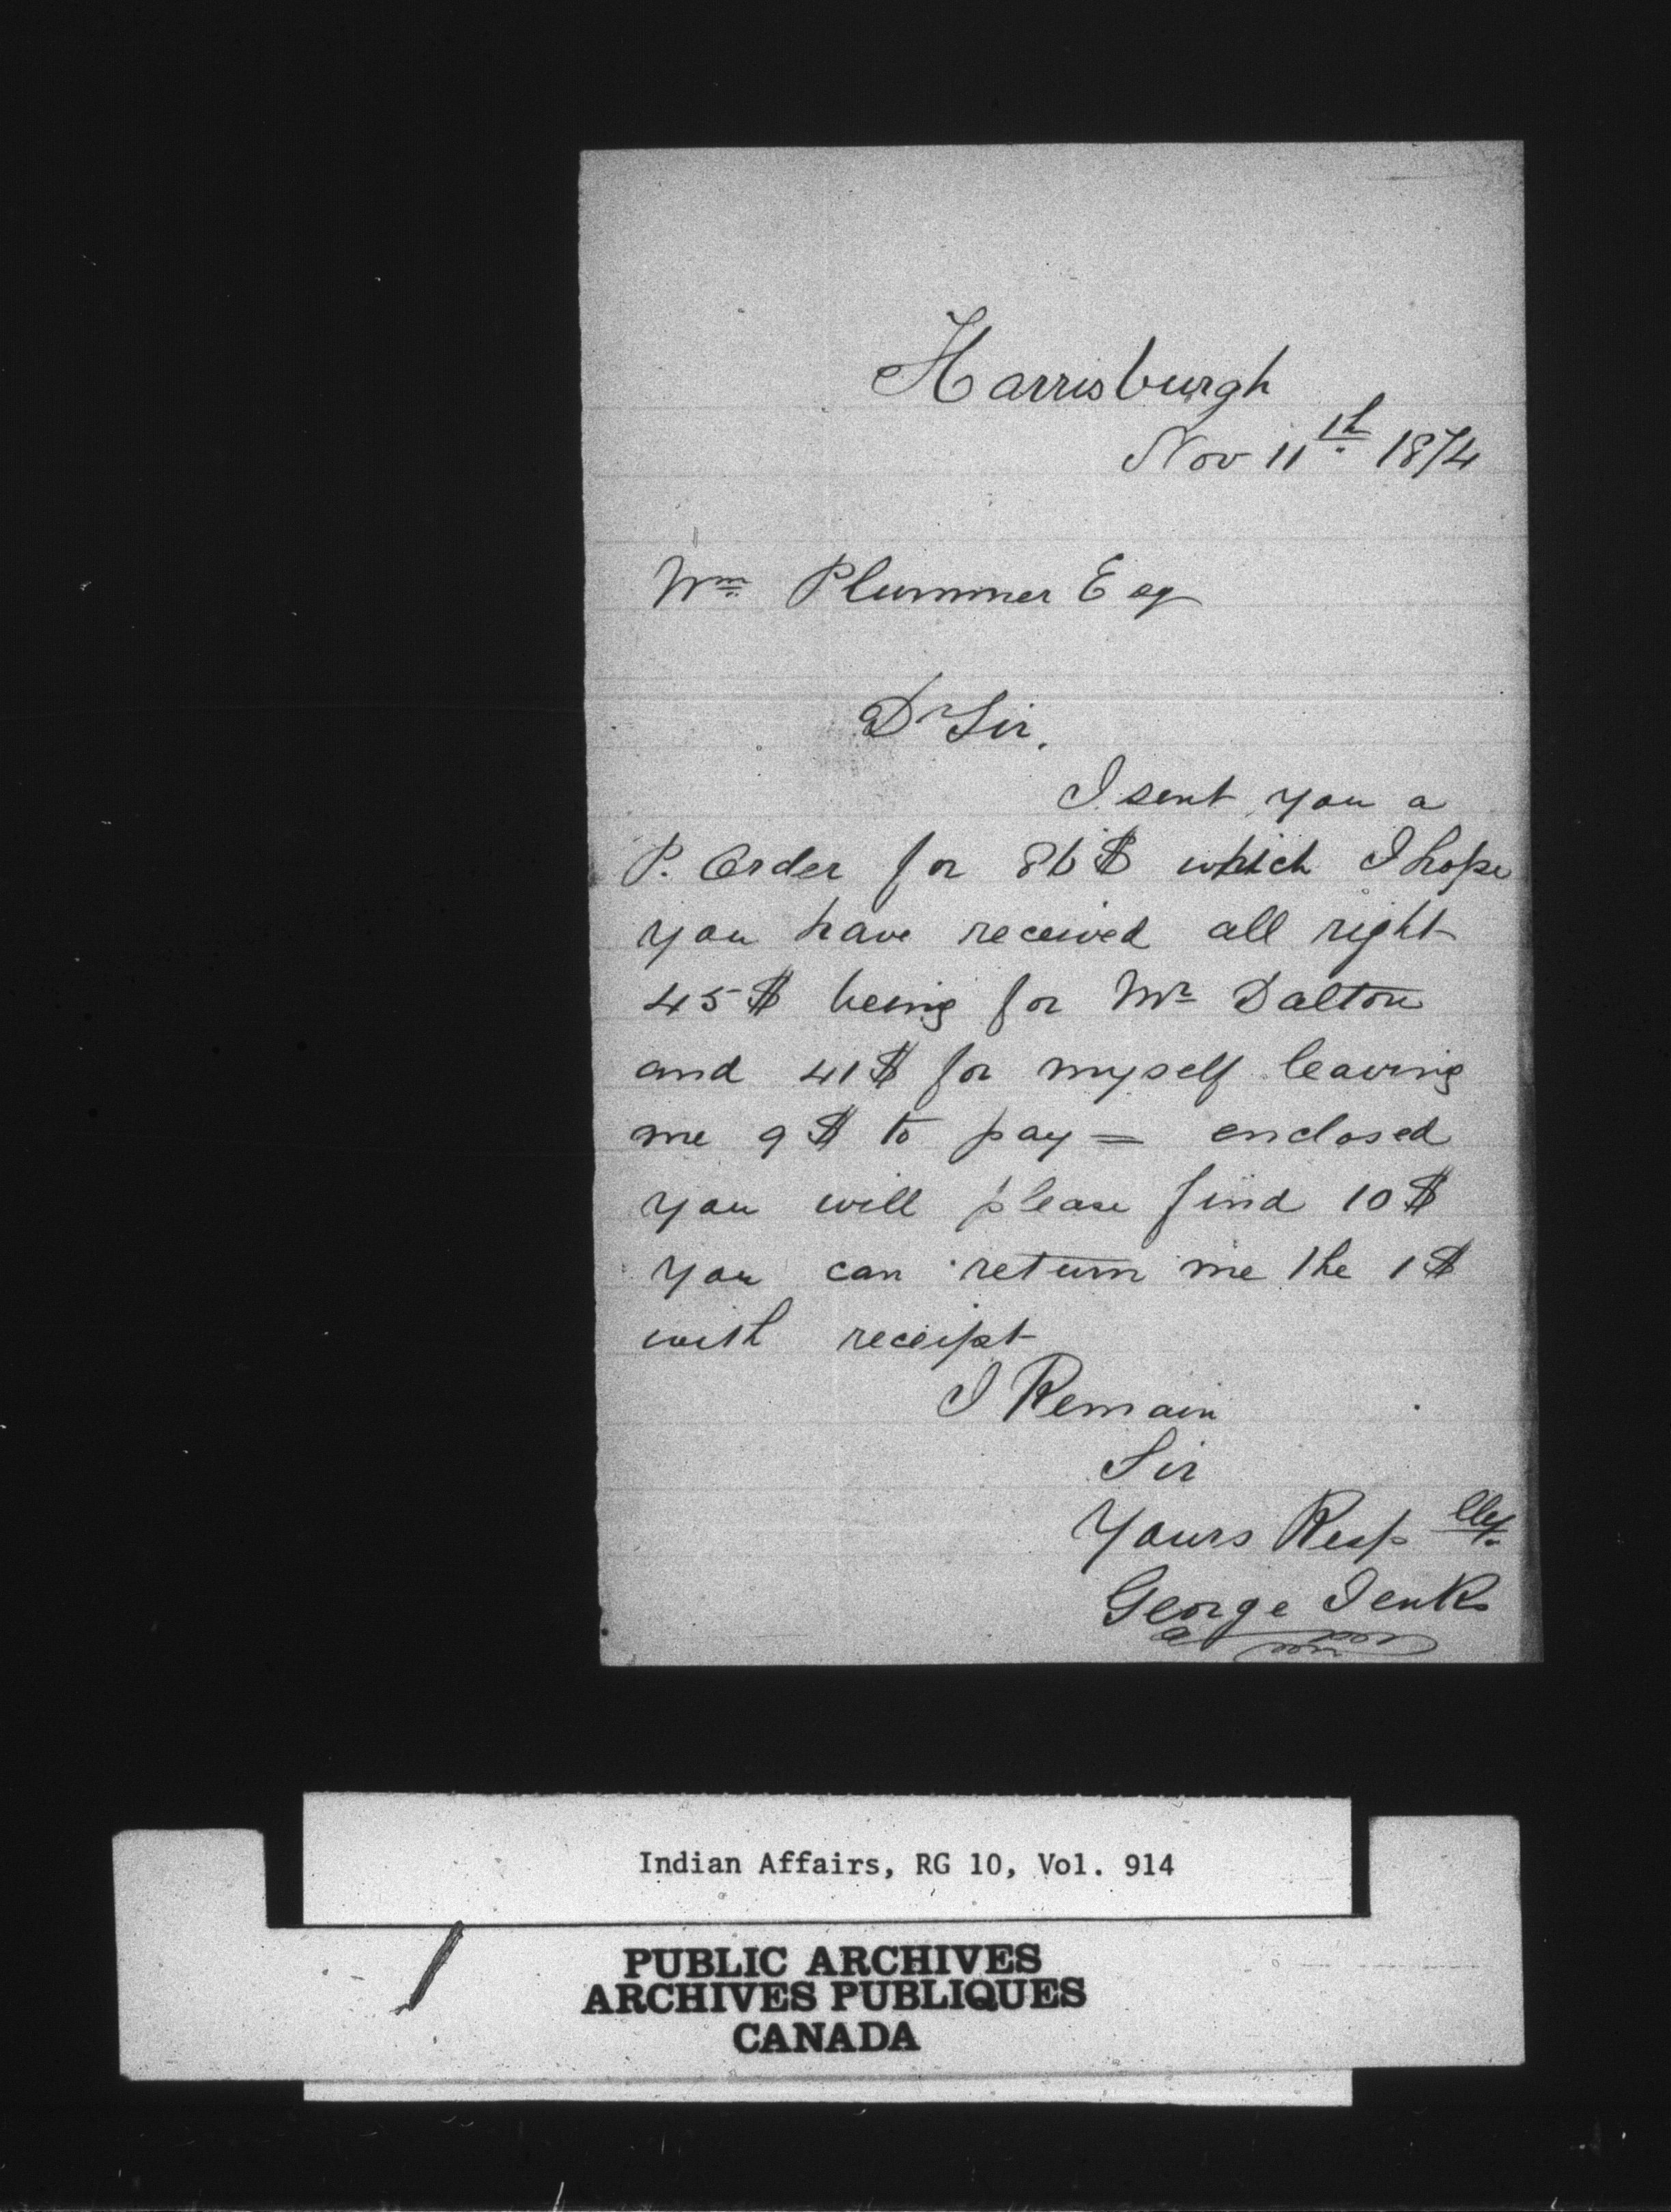 Harrisburgh
Nov 11th 1874
Wm Plummer Esq
Dr Sir,
I sent you a
P. Order for 86$ which I hope
you have received all right
45$ being for Mr Dalton
and 41$ for myself leaving
me 9$ to pay = enclosed
you will please find 10$
you can return me the 1$
with receipt
I Remain
Sir
Yours Resp lly
George Jenks
Indian Affairs, RG 10, Vol. 914
PUBLIC ARCHIVES
ARCHIVES PUBLIQUES
CANADA